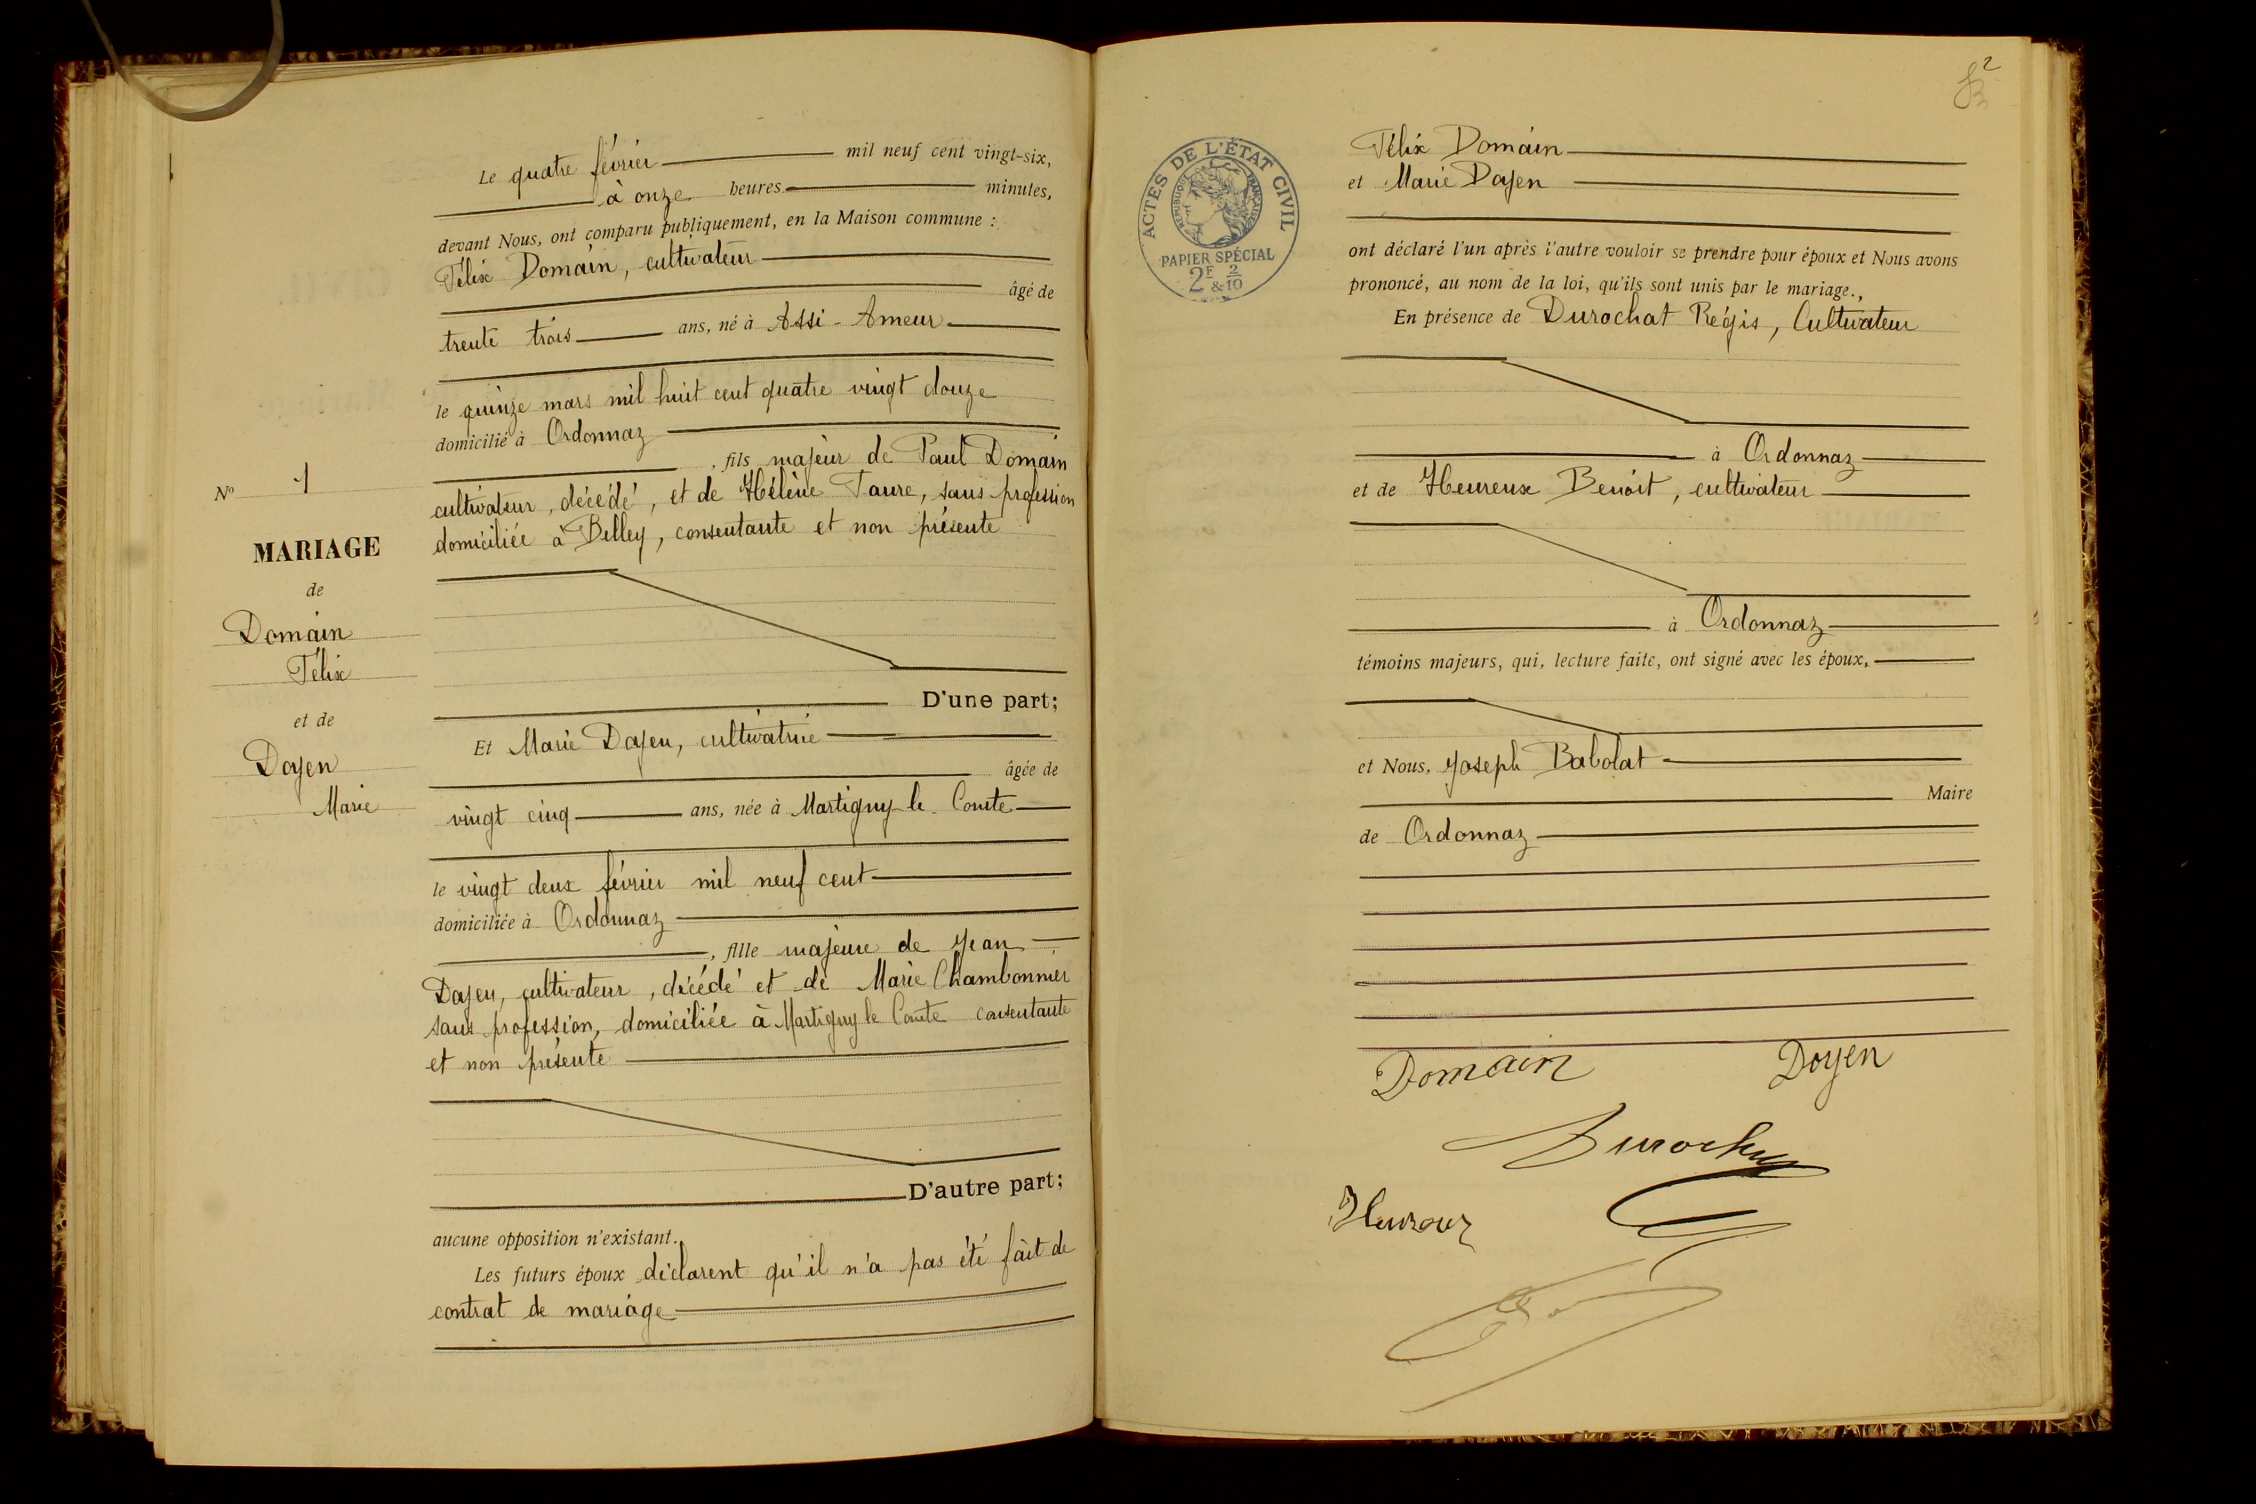 Le quatre février mil neuf cent vingt-six,
à onze heures minutes,
devant Nous, ont comparu publiquement, en la Maison commune :
Félix Domain, cultivateur
âgé de
trente trois ans, né à Assi-Ameur
le quinze mars mil huit cent quatre vingt douze
domicilié à Ordonnaz
, fils majeur de Paul Domain
cultivateur, décédé, et de Hélène Faure, sans profession
domiciliée à Belley, consentante et non présente
D'une part;
Et Marie Doyen, cultivatrice
âgée de
vingt cinq ans, née à Martigny-le-Comte
le vingt deux février mil neuf cent
domiciliée à Ordonnaz
, fille majeure de Jean
Doyen, cultivateur, décédé et de Marie Chambonnier
sans profession, domiciliée à Martigny le Comte consentante
et non présente
D'autre part;
aucune opposition n'existant.
Les futurs époux déclarent qu'il n'a pas été fait de
contrat de mariage
No 1
MARIAGE
de
Domain
Félix
et de
Doyen
Marie
2
ACTES DE L'ÉTAT CIVIL
RÉPUBLIQUE FRANÇAISE
PAPIER SPÉCIAL
2F & 2/10
Félix Domain
et Marie Doyen
ont déclaré l'un après l'autre vouloir se prendre pour époux et Nous avons
prononcé, au nom de la loi, qu'ils sont unis par le mariage.,
En présence de Durochat Régis, Cultivateur
à Ordonnaz
et de Heureux Benoît, cultivateur
à Ordonnaz
témoins majeurs, qui, lecture faite, ont signé avec les époux,
et Nous, Joseph Babolat
Maire
de Ordonnaz
Domain Doyen
Durochat
Heureux